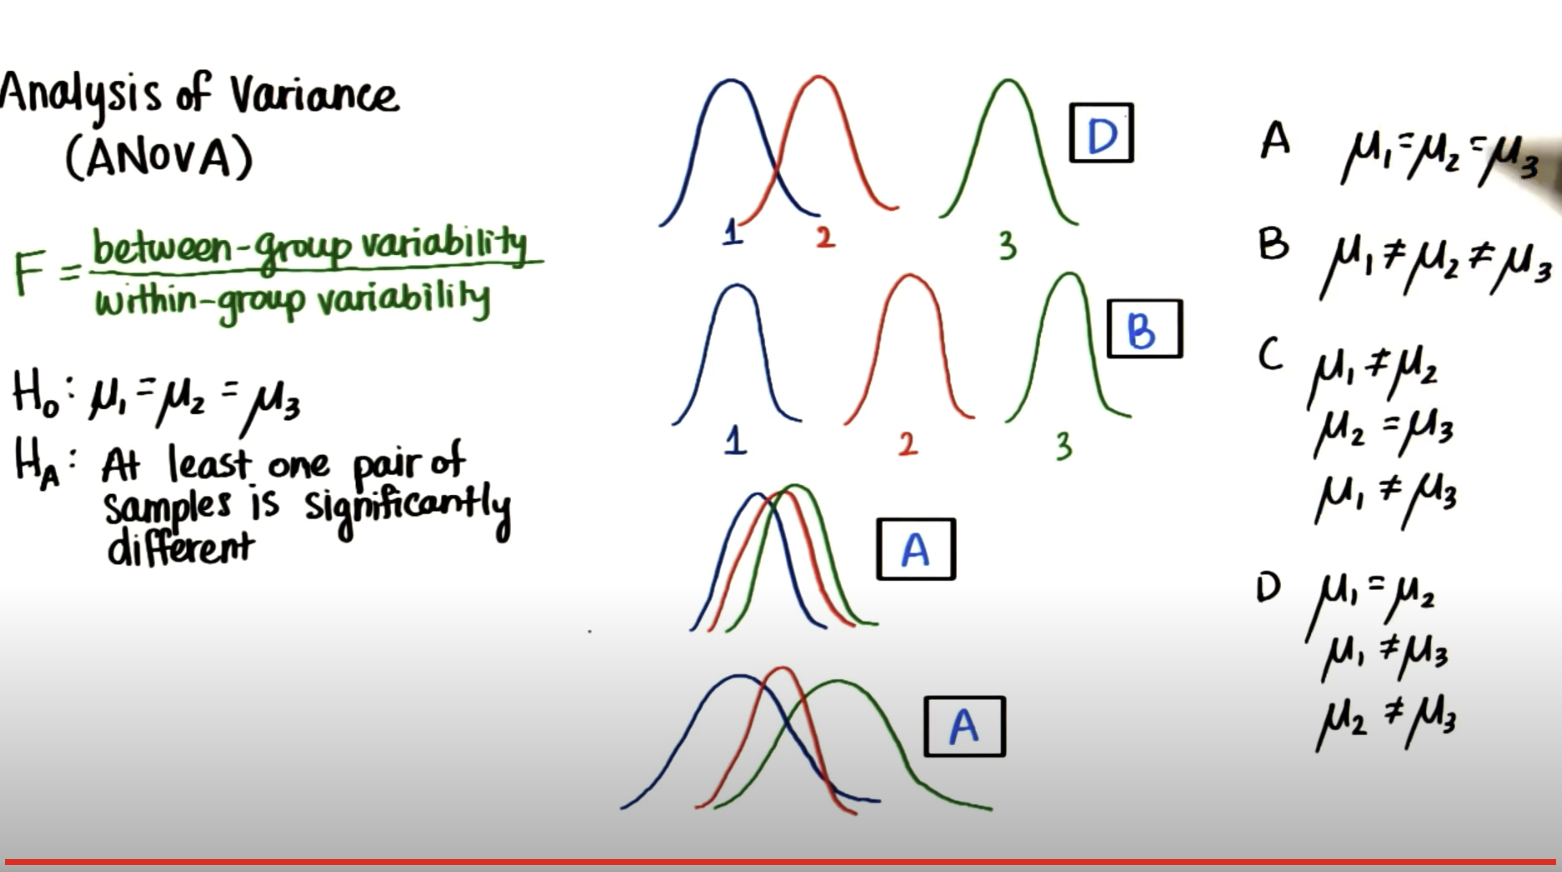 Analysis of Variance
(ANOVA)
F = between-group variability
within-group variability
H₀: μ₁ = μ₂ = μ₃
H_A: At least one pair of
samples is significantly
different
D
1
2
3
B
1
2
3
A
A
A μ₁ = μ₂ = μ₃
B μ₁ ≠ μ₂ ≠ μ₃
C μ₁ ≠ μ₂
μ₂ = μ₃
μ₁ ≠ μ₃
D μ₁ = μ₂
μ₁ ≠ μ₃
μ₂ ≠ μ₃